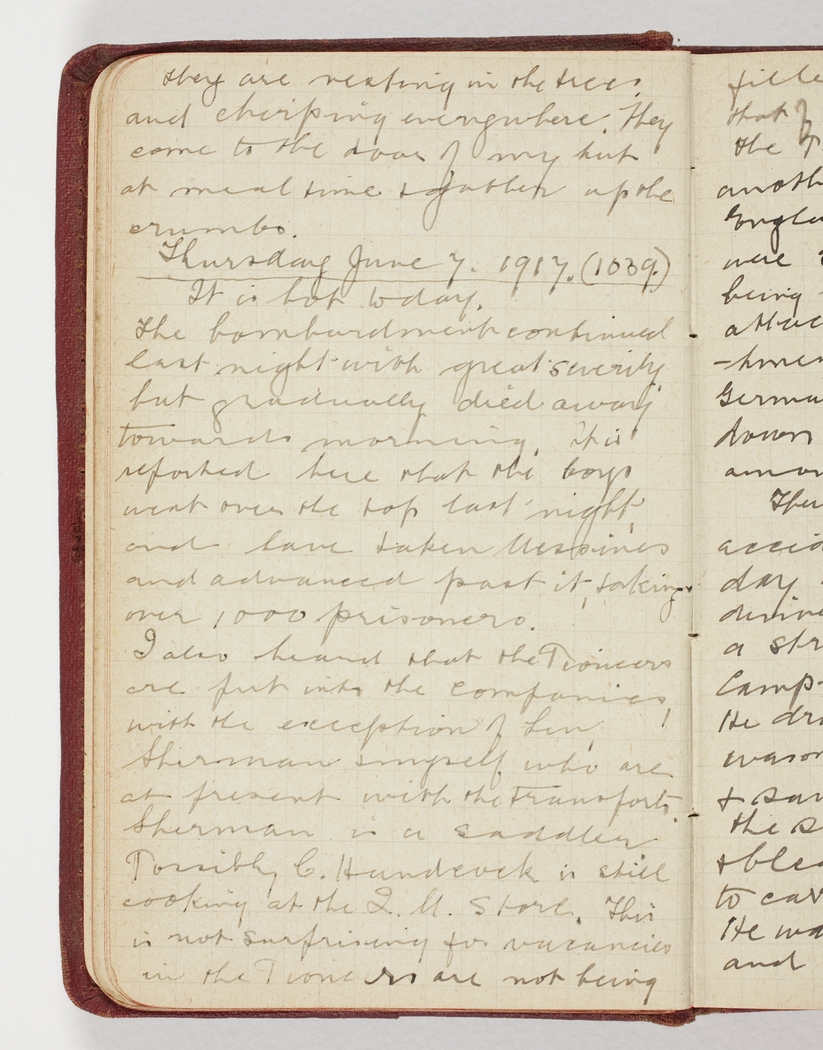 they are nesting in the trees
and cheirping everywhere. They
come to the door of my hut
at meal time & gather up the
crumbs.
Thursday June 7. 1917. (1039.)
It is hot today.
The bombardment continued
last night with great severity
but gradually died away
towards morning. It is
reported here that the boys
went over the top last night
and have taken Messines
and advanced past it, taking
over 1000 prisoners.
I also heard that the Pioneers
are put into the companies
with the exception of Len
Sherman & myself, who are
at present with the transports.
Sherman is a saddler
Possibly C. Handcock is still
cooking at the Q. M. Store. This
is not surprising for vacancies
in the Pioneers are not being
fille
that of
the
anoth
Engla
were
being
attac
-hmen
Germa
down
amon
accid
day
a str
Camp
He dr
& sa
the s
& blea
to car
He wa
and